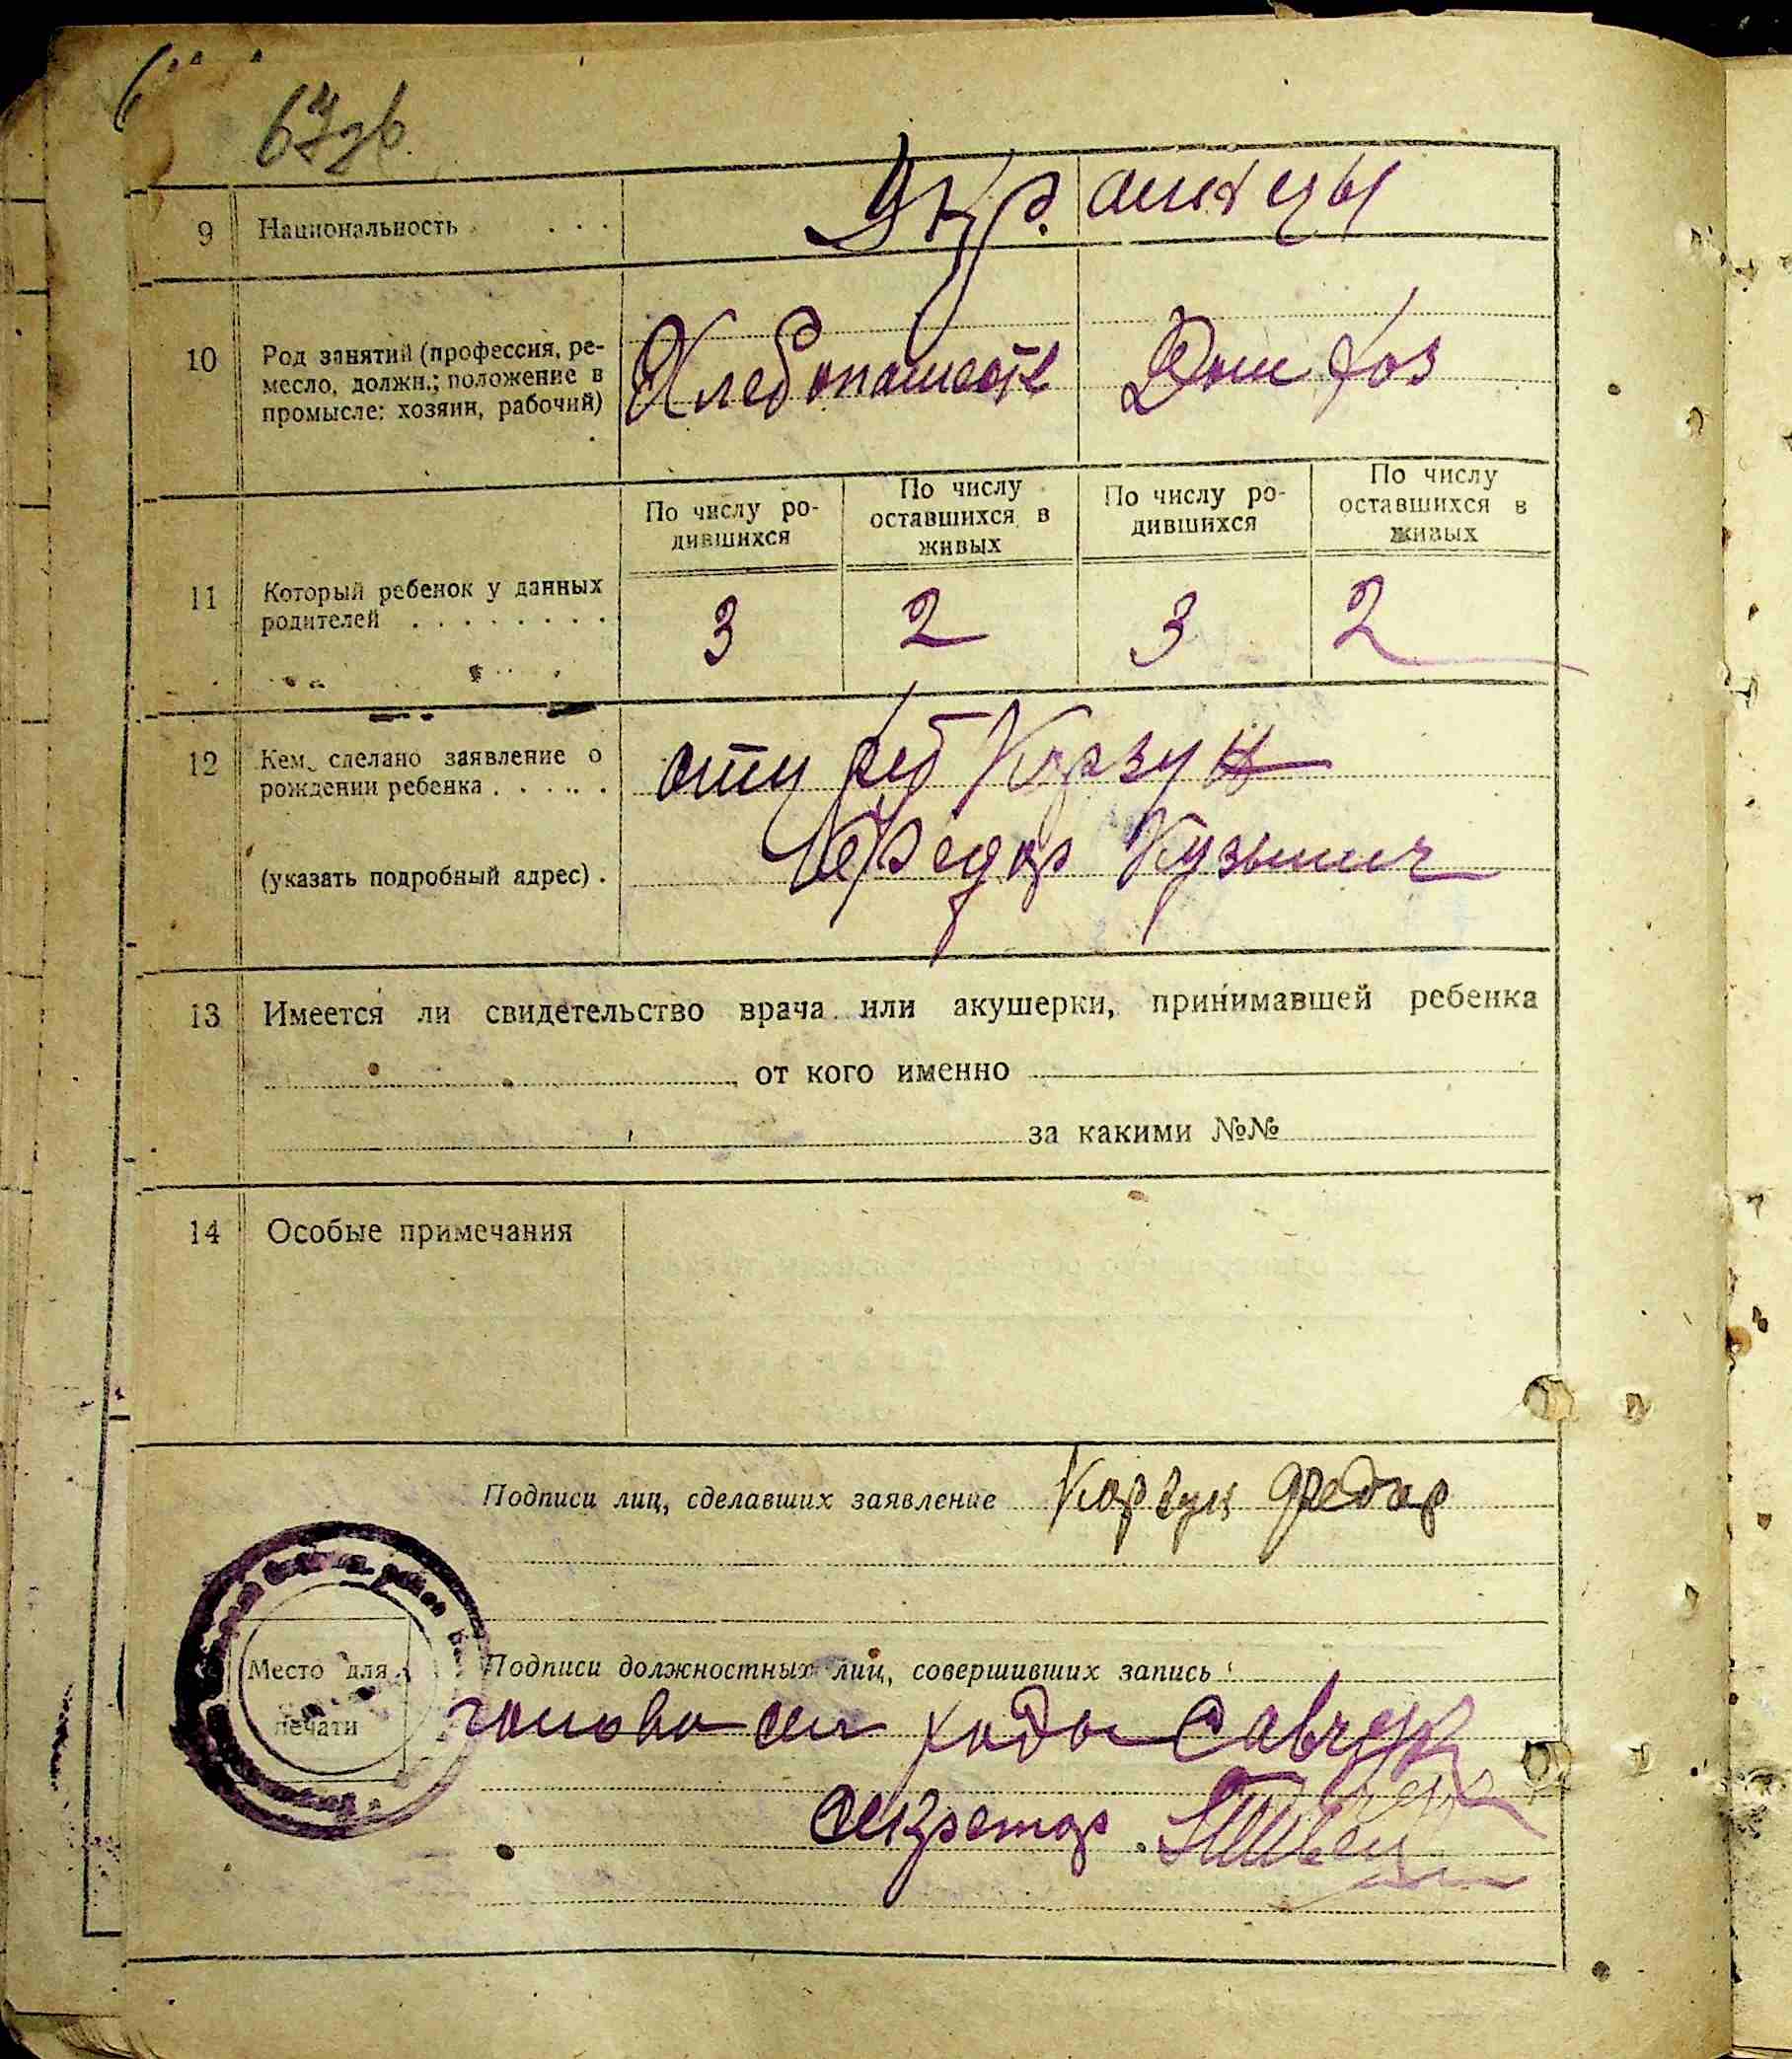 67зв
9 Национальность . . . Укр. аинцы
10 Род занятий (профессия, ре-
месло, должн.; положение в
промысле: хозяин, рабочий)
Хлебопашест Дом хоз
По числу ро-
дившихся
По числу
оставшихся в
живых
По числу ро-
дившихся
По числу
оставшихся в
живых
11 Который ребенок у данных
родителей . . . . . . . .
3 2 3 2
12 Кем сделано заявление о
рождении ребенка . . . . .
(указать подробный адрес) .
отц реб Корзун
Федор Кузьмич
13 Имеется ли свидетельство врача или акушерки, принимавшей ребенка
от кого именно
за какими №№
14 Особые примечания
Подписи лиц, сделавших заявление Корзун Федор
Место для
печати
Подписи должностных лиц, совершивших запись
голова сил ради Савчук
секретар Швец